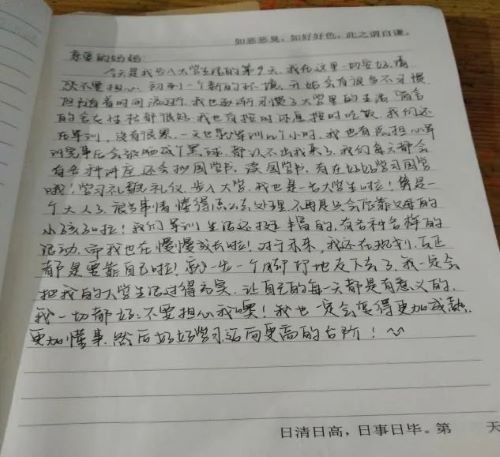 如恶恶臭，如好好色，此之谓自谦。
亲爱的妈妈：
今天是我步入大学生活的第9天，我在这里一切安好，请
您不要担心，初到一个新的环境，开始会有很多不习惯
但随着时间流逝，我也逐渐习惯了大学里的生活，宿舍
的室友相处都很好，我也有按时休息按时吃饭，我们还
在军训，没有很累，一天也就军训几个小时，我也有点担心军
训完毕后会被晒成个黑球，都认不出我来了，我们每天都会
有各种讲座，还会抄国学书，读国学书，有在好好学习国学
哦！学习礼貌礼仪，步入大学，我也是一名大学生啦！算是一
个大人了，很多事情懂得怎么去处理，不再是只会依靠父母的
小孩子啦！我们军训生活还挺丰富的，有各种各样的
活动，而我也在慢慢成长啦！对于未来，我还在规划，反正
都是要靠自己啦！就一步一个脚印地走下去了，我一定会
把我的大学生活过得充实，让自己的每一天都是有意义的，
我一切都好，不要担心我噢！我也一定会变得更加成熟，
更加懂事，然后好好学习迈向更高的台阶！～
日清日高，日事日毕。第 天